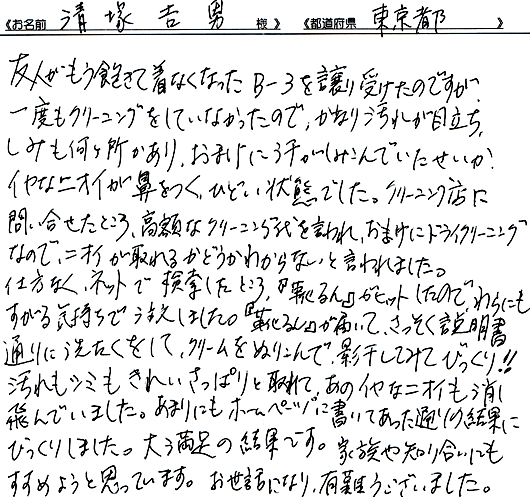 《お名前 清塚吉男 様 》 《都道府県 東京都 》
友人がもう飽きて着なくなったB-3を譲り受けたのですが、
一度もクリーニングをしていなかったので、かなり汚れが目立ち、
しみも何ヶ所かあり、おまけに汗がしみこんでいたせいか?
イヤなニオイが鼻をつく、ひどい状態でした。クリーニング店に
問い合せたところ、高額なクリーニング代を言われ、おまけにドライクリーニング
なので、ニオイが取れるかどうかわからないと言われました。
仕方なく、ネットで検索したところ、『革もるん』がヒットしたので、わらにも
すがる気持ちで注文しました。『革もるん』が届いて、さっそく説明書
通りに洗たくをして、クリームをぬりこんで、影干ししてみてびっくり!!
汚れもシミもきれいさっぱりと取れて、あのイヤなニオイも消し
飛んでいました。あまりにもホームページに書いてあった通りの結果に
びっくりしました。大う満足の結果です。家族や知り合いにも
すすめようと思っています。お世話になり、有難うございました。